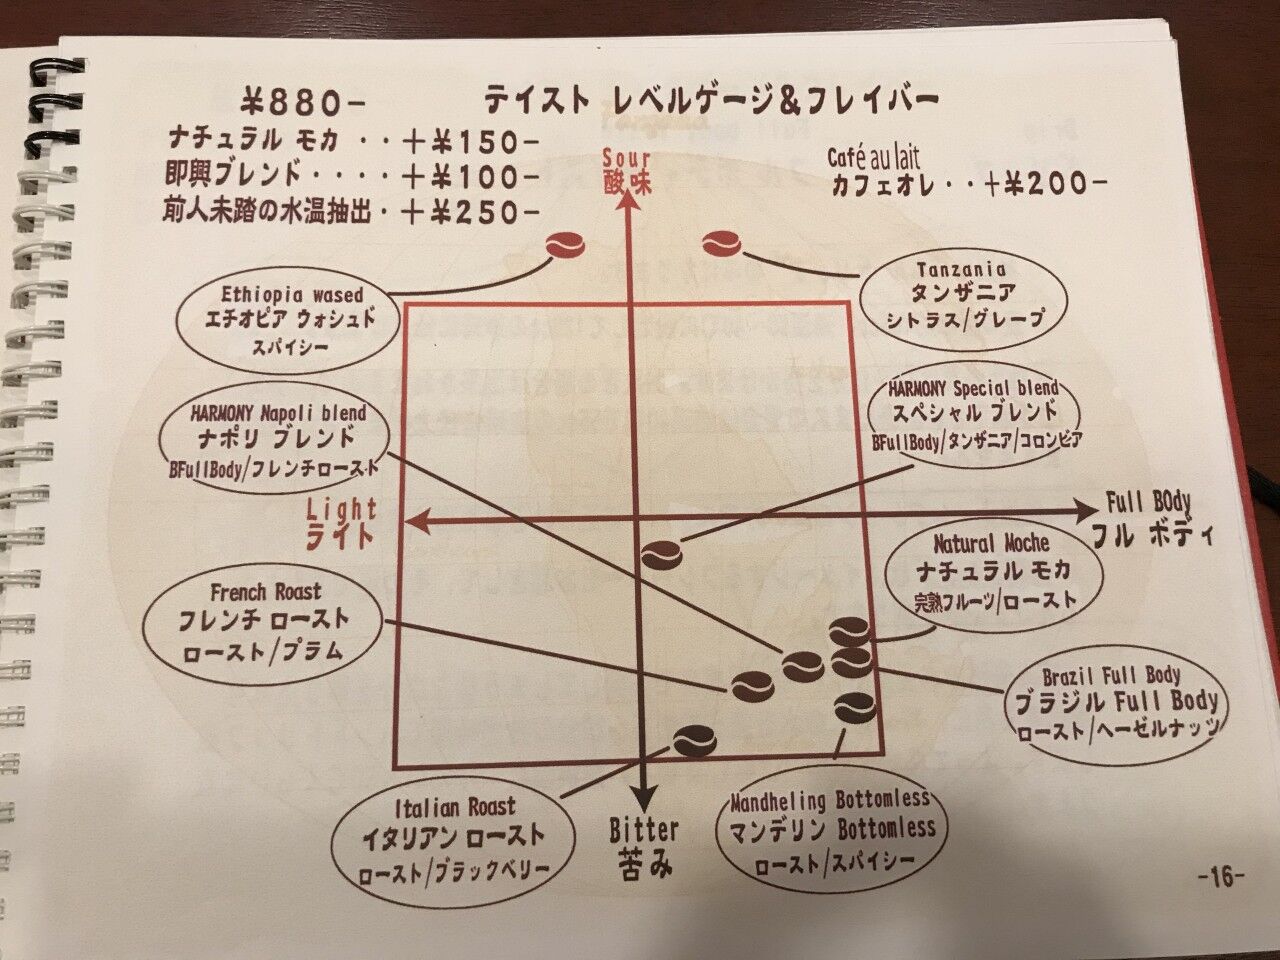 ¥880-
テイスト レベルゲージ&フレイバー
ナチュラル モカ ‥+¥150-
即興ブレンド‥‥+¥100-
前人未踏の水温抽出・+¥250-
Café au lait
カフェオレ‥+¥200-
Sour
酸味
Ethiopia wased
エチオピア ウォシュド
スパイシー
Tanzania
タンザニア
シトラス/グレープ
HARMONY Napoli blend
ナポリ ブレンド
BFullBody/フレンチロースト
HARMONY Special blend
スペシャル ブレンド
BFullBody/タンザニア/コロンビア
Light
ライト
Full BOdy
フル ボディ
French Roast
フレンチ ロースト
ロースト/プラム
Natural Moche
ナチュラル モカ
完熟フルーツ/ロースト
Brazil Full Body
ブラジル Full Body
ロースト/ヘーゼルナッツ
Italian Roast
イタリアン ロースト
ロースト/ブラックベリー
Bitter
苦み
Mandheling Bottomless
マンデリン Bottomless
ロースト/スパイシー
-16-